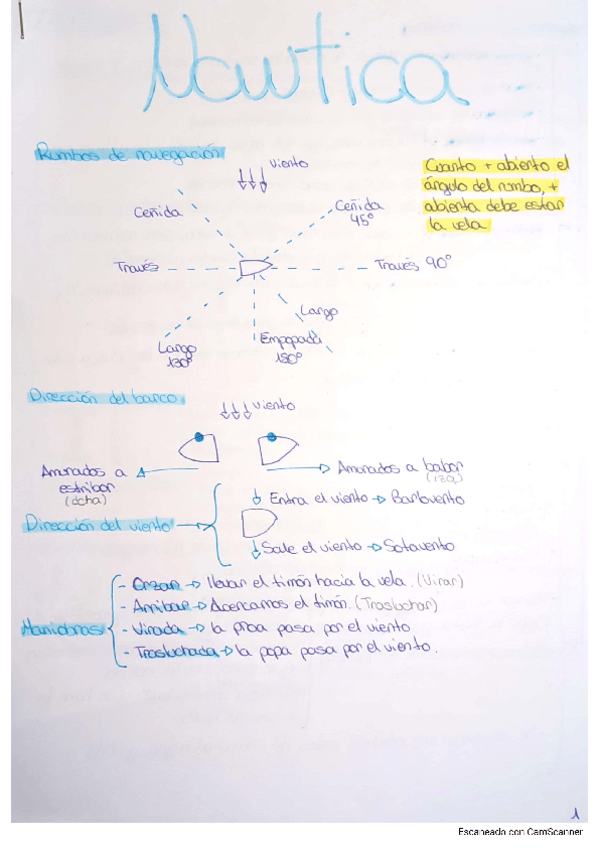 Nautica
Rumbos de navegación
viento
Cuanto + abierto el
ángulo del rumbo, +
abierta debe estar
la vela
Ceñida
Ceñida
45º
Través
Través 90º
Largo
Largo
130º
Empopada
180º
Dirección del barco
viento
Amurados a
estribor
(dcha)
Amurados a babor
(izq)
Dirección del viento
Entra el viento → Barlovento
Sale el viento → Sotavento
Maniobras
- Orzar → llevar el timón hacia la vela. (Virar)
- Arribar → Acercamos el timón. (Trasluchar)
- Virada → la proa pasa por el viento
- Trasluchada → la popa pasa por el viento.
1
Escaneado con CamScanner